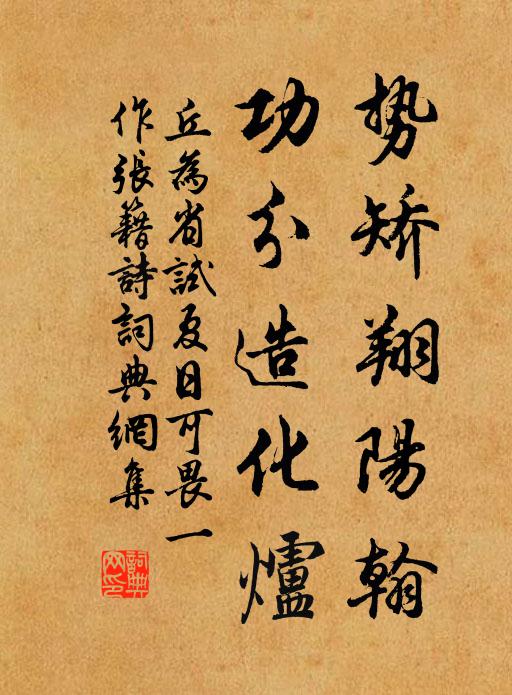 势矫翔陽翰
功分造化爐
丘為省試夏日可畏一
作張籍詩詞典網集
詞典網印